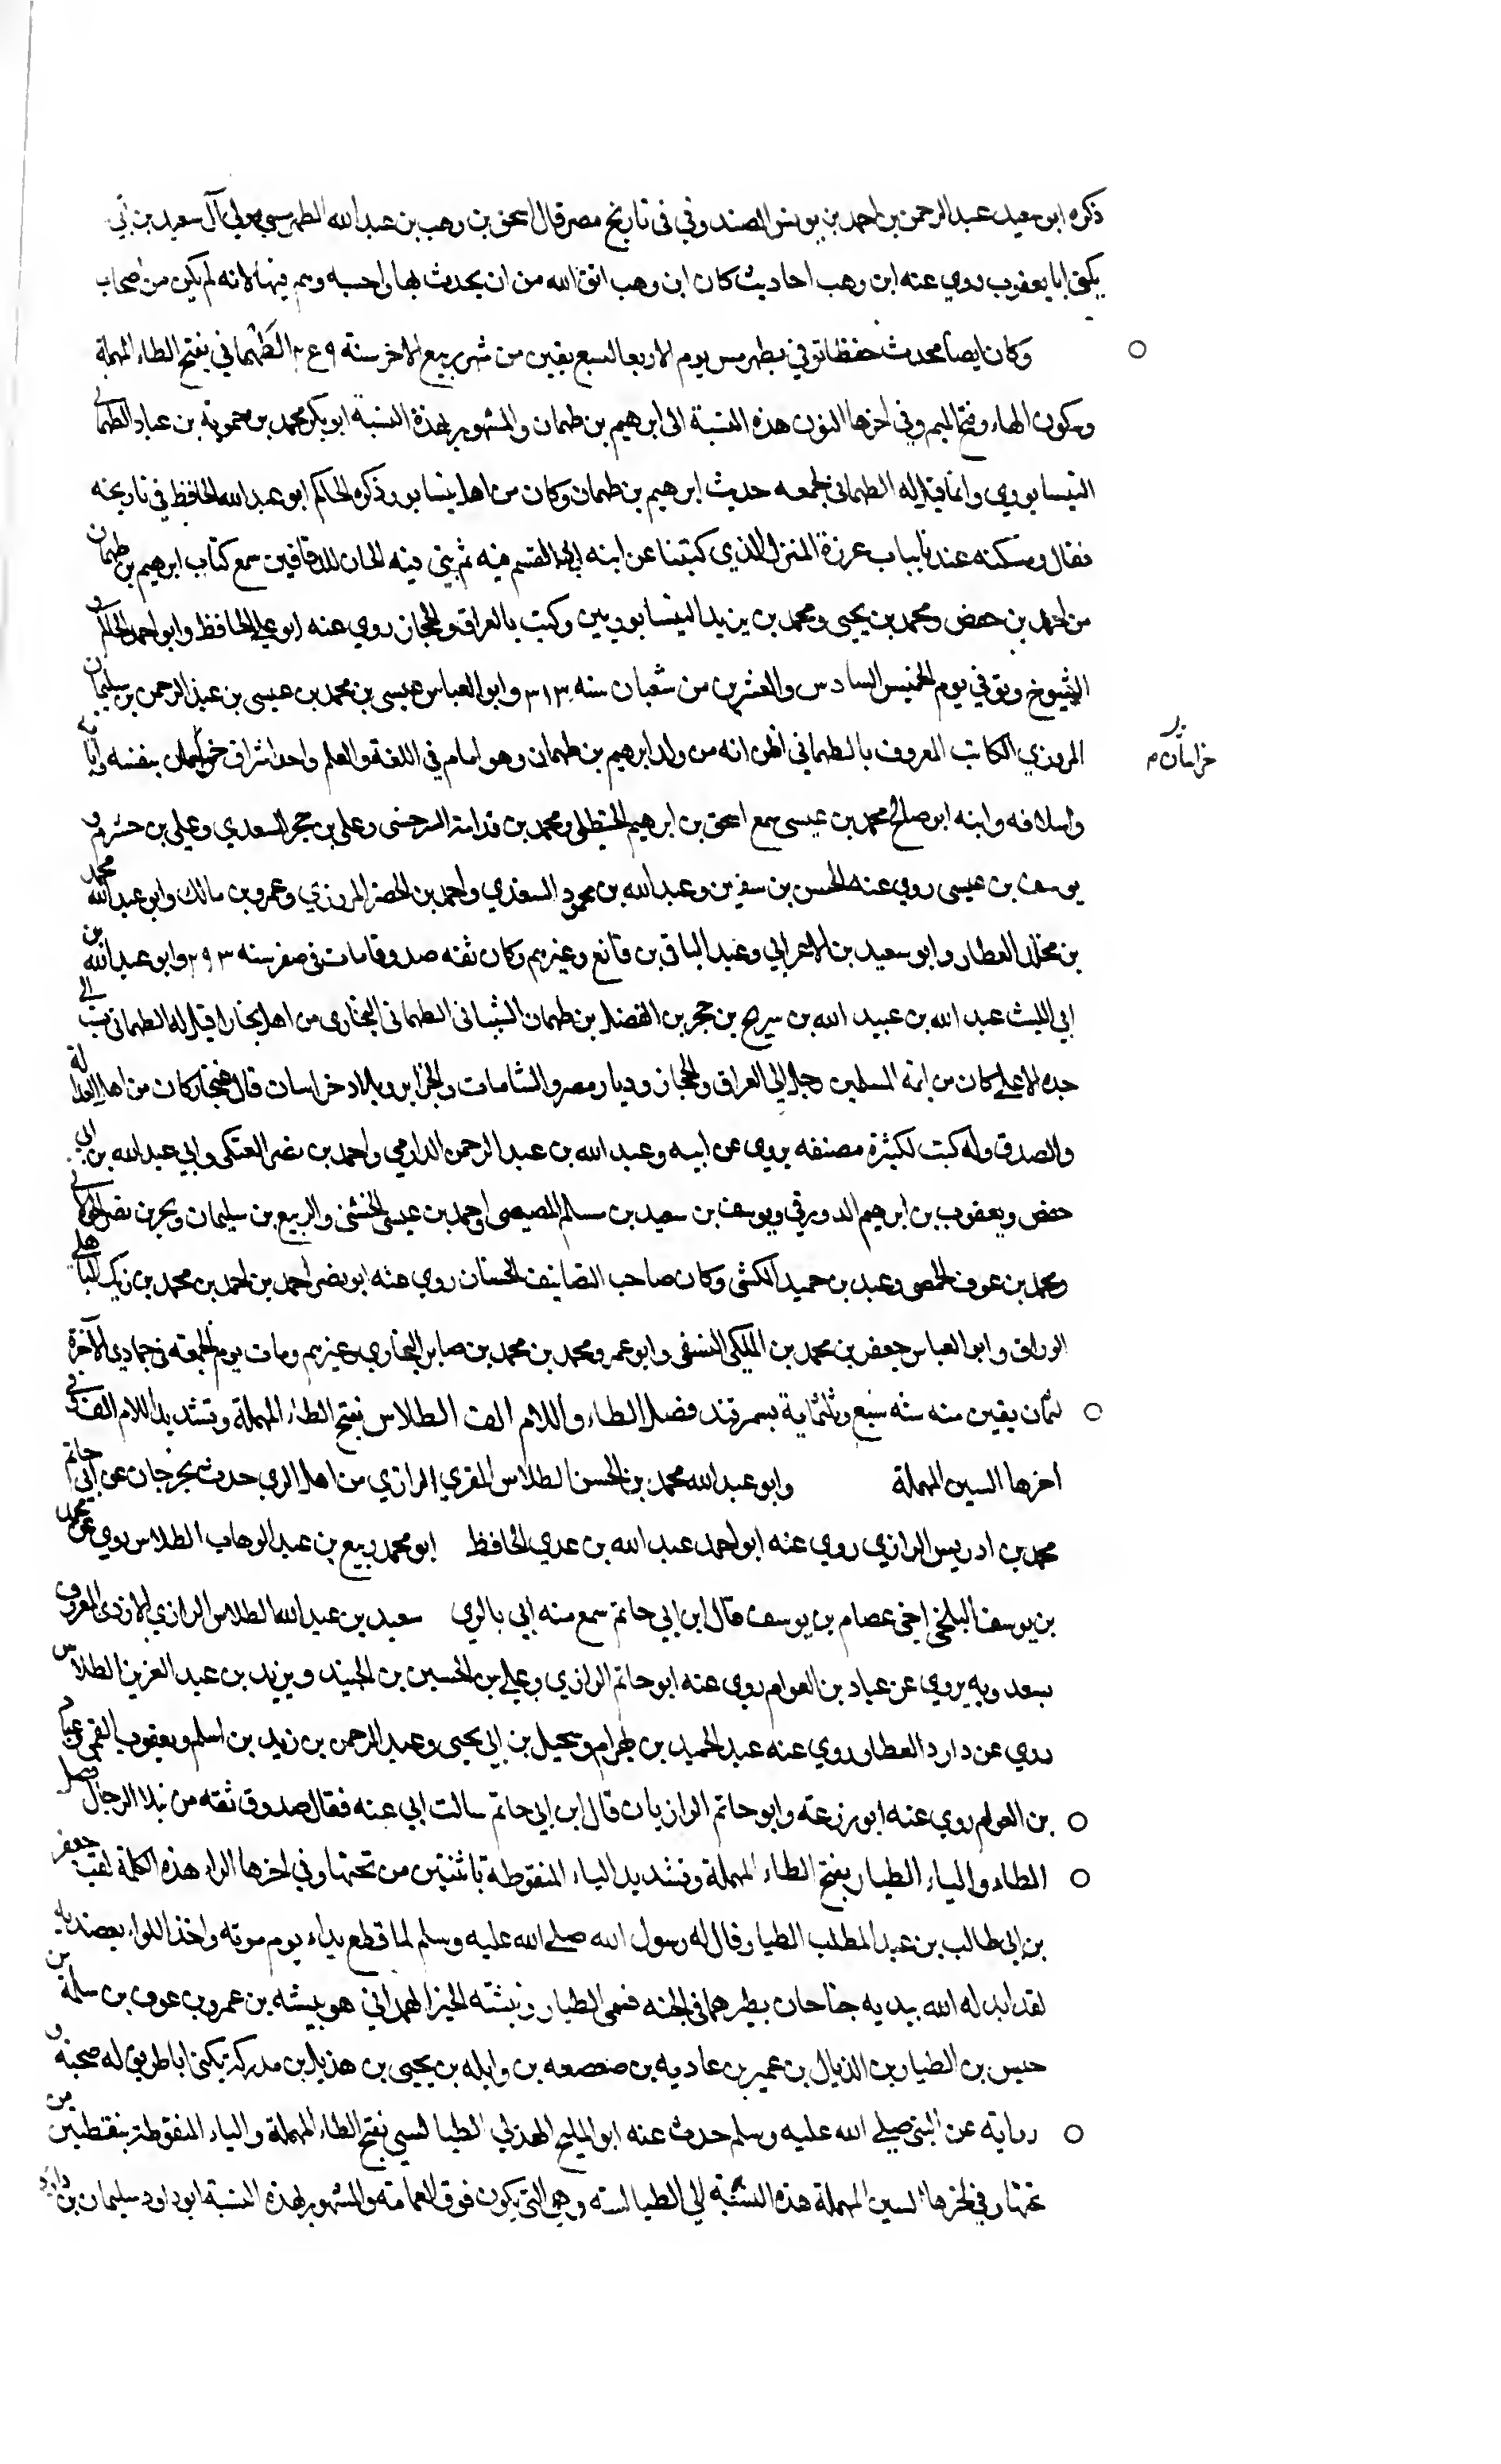 ذكره ابن سعيد عبد الرحمن بن احمد بن يونس الصندوفي في تاريخ مصر قال اسحق بن وهب بن عبد الله الطهرمسي مولي آل سعيد بن ابي
يكنى ابا يعقوب روي عنه ابن وهب احاديث كان ابن وهب اتق الله من ان يحدث بها واحسبه وهم فيها لانه لم يكن من اصحاب
وكان ايضا محدث حفظا توفي بطهرمس يوم الاربعا لسبع بقين من شهر ربيع الاخر سنة الطهماني بفتح الطاء المهملة
وسكون الهاء وفتح الميم وفي اخرها النون هذه النسبة الى ابرهيم بن طهمان والمشهور بهذة النسبة ابو بكر محمد بن حمويه بن عباد الطهماني
النيسابوري وانما قيل له الطهماني لجمعه حديث ابرهيم بن طهمان وكان من اهل نيسابور وذكره الحاكم ابو عبد الله الحافظ في تاريخه
فقال ومسكنه عندنا بباب عزرة المنزل الذي كتبنا عن ابنه ابي القسم فيه ثم بني فيه الخان للدقاقين سمع كتاب ابرهيم بن طهمان
من احمد بن حفص ومحمد بن يحيى ومحمد بن يزيد النيسابوريين وكتب بالعراق والحجاز روي عنه ابو علي الحافظ وابو احمد الحاكم و
الشيوخ وتوفي يوم الخميس السادس والعشرين من شعبان سنه ٣١٣ وابو العباس عيسى بن محمد بن عيسى بن عبد الرحمن بن سليمان
المروزي الكاتب المعروف بالطهماني اظن انه من ولد ابرهيم بن طهمان وهو امام في اللغة والعلم واحد اشراف خراسان بنفسه وآبائه
خراسان م
واسلافه وابنه ابو صالح محمد بن عيسى سمع اسحق بن ابرهيم الحنظلي ومحمد بن قدامة السرخسي وعلي بن حجر السعدي وعلي بن خشرم و
يوسف بن عيسى روي عنه الحسن بن سفين وعبد الله بن محمود السغدي واحمد بن الخضر المروزي وعمرو بن مالك وابو عبد الله محمد
بن مخلد العطار وابو سعيد بن الاعرابي وعبد الباقي بن قانع وغيرهم وكان ثقه صدوقا مات في صفر سنه ٢٩٣ وابو عبد الله بن
ابي الليث عبد الله بن عبيد الله بن سريج بن حجر بن الفضل بن طهمان الشيباني الطهماني البخاري من اهل بخارا قيل له الطهماني نسب الي
جده الاعلى كان من ائمة المسلمين رحل الي العراق والحجاز وديار مصر والشامات والجزاير وبلاد خراسان قال غنجار كان من اهل العدالة
والصدق وله كتب لكثيرة مصنفه يروي عن ابيه وعبد الله بن عبد الرحمن الدارمي واحمد بن نصر العتكي وابي عبد الله بن ابي
حفص ويعقوب بن ابرهيم الدورقي ويوسف بن سعيد بن مسلم المصيصي واحمد بن عيسى الخشني والربيع بن سليمان وبحر بن نصر الخولاني
ومحمد بن عوف الحمصي وعبد بن حميد الكشي وكان صاحب التصانيف الحسان روي عنه ابو نصر احمد بن احمد بن محمد بن زيرك الباهلي
الوراق وابو العباس جعفر بن محمد بن المكي النسفي وابو عمرو محمد بن محمد بن صابر البخاري وغيرهم ومات يوم الجمعه في جمادي الآخرة
لثمان بقين منه سنه سبع وثلثماية بسمرقند فصل الطاء واللام الف الطلاس بفتح الطاء المهملة وتشديد اللام الف في
اخرها السين المهملة وابو عبد الله محمد بن الحسن الطلاس المقري الرازي من اهل الري حدث بجرجان عن ابي حاتم
محمد بن ادريس الرازي روي عنه ابو احمد عبد الله بن عدي الحافظ ابو محمد ربيع بن عبد الوهاب الطلاس روي عن محمد
بن يوسف البلخي اخي عصام بن يوسف قال ابن ابي حاتم سمع منه ابي بالري سعيد بن عبد الله الطلاس الرازي الازدي المعروف
بسعدويه يروي عن عباد بن العوام روي عنه ابو حاتم الرازي وعلي بن الحسين بن الجنيد ويزيد بن عبد العزيز الطلاس
روي عن داود العطار روي عنه عبد الحميد بن بهرام ويحيي بن ابي يحيى وعبد الرحمن بن زيد بن اسلم ويعقوب القمي وعباد
بن العوام روي عنه ابو زرعة وابو حاتم الرازيان قال ابن ابي حاتم سالت ابي عنه فقال صدوق ثقه من نبلا الرجال فصل
الطاء والياء الطيار بفتح الطاء المهملة وتشديد الياء المنقوطة باثنتين من تحتها وفي اخرها الراء هذه الكلمة لقب جعفر
بن ابي طالب بن عبد المطلب الطيار وقال له رسول الله صلي الله عليه وسلم لما قطع يداه يوم موته واخذ اللواء بعضديه
لقد ابدله الله بيديه جناحان يطير بهما في الجنه فسمي الطيار ونبشته الخير الهمداني هو بيشه بن عمرو بن عوف بن سلمة بن
حبس بن الطيار بن الذيال بن عمير بن عاديه بن صعصعه بن وابله بن يحيى بن هذيل بن مدركة يكنى ابا طريق له صحبة و
رواية عن النبي صلي الله عليه وسلم حدث عنه ابو المليح الهذلي الطيالسي بفتح الطاء المهملة والياء المنقوطة بنقطتين من
تحتها وفي اخرها السين المهملة هذه النسبة الي الطيالسه وهي التي يكون فوق العمامة والمشهور بهذه النسبة ابو داود سليمان بن داود